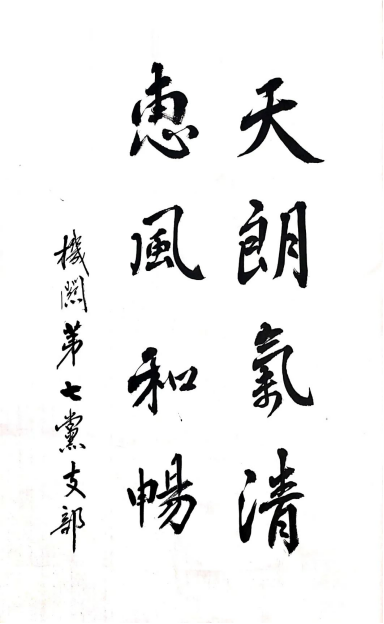 天朗氣清
惠風和暢
機關第七黨支部